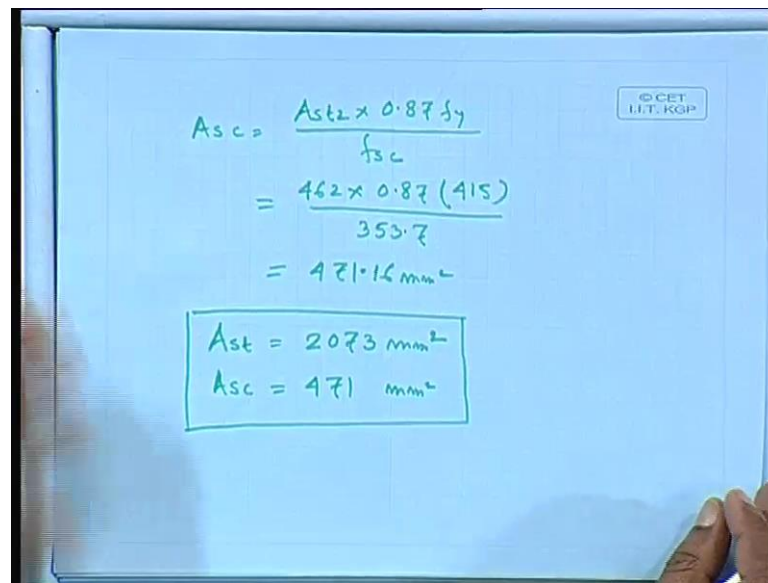 © CET
I.I.T. KGP
Asc = Ast2 x 0.87 fy
fsc
= 462 x 0.87 (415)
353.7
= 471.16 mm²
Ast = 2073 mm²
Asc = 471 mm²